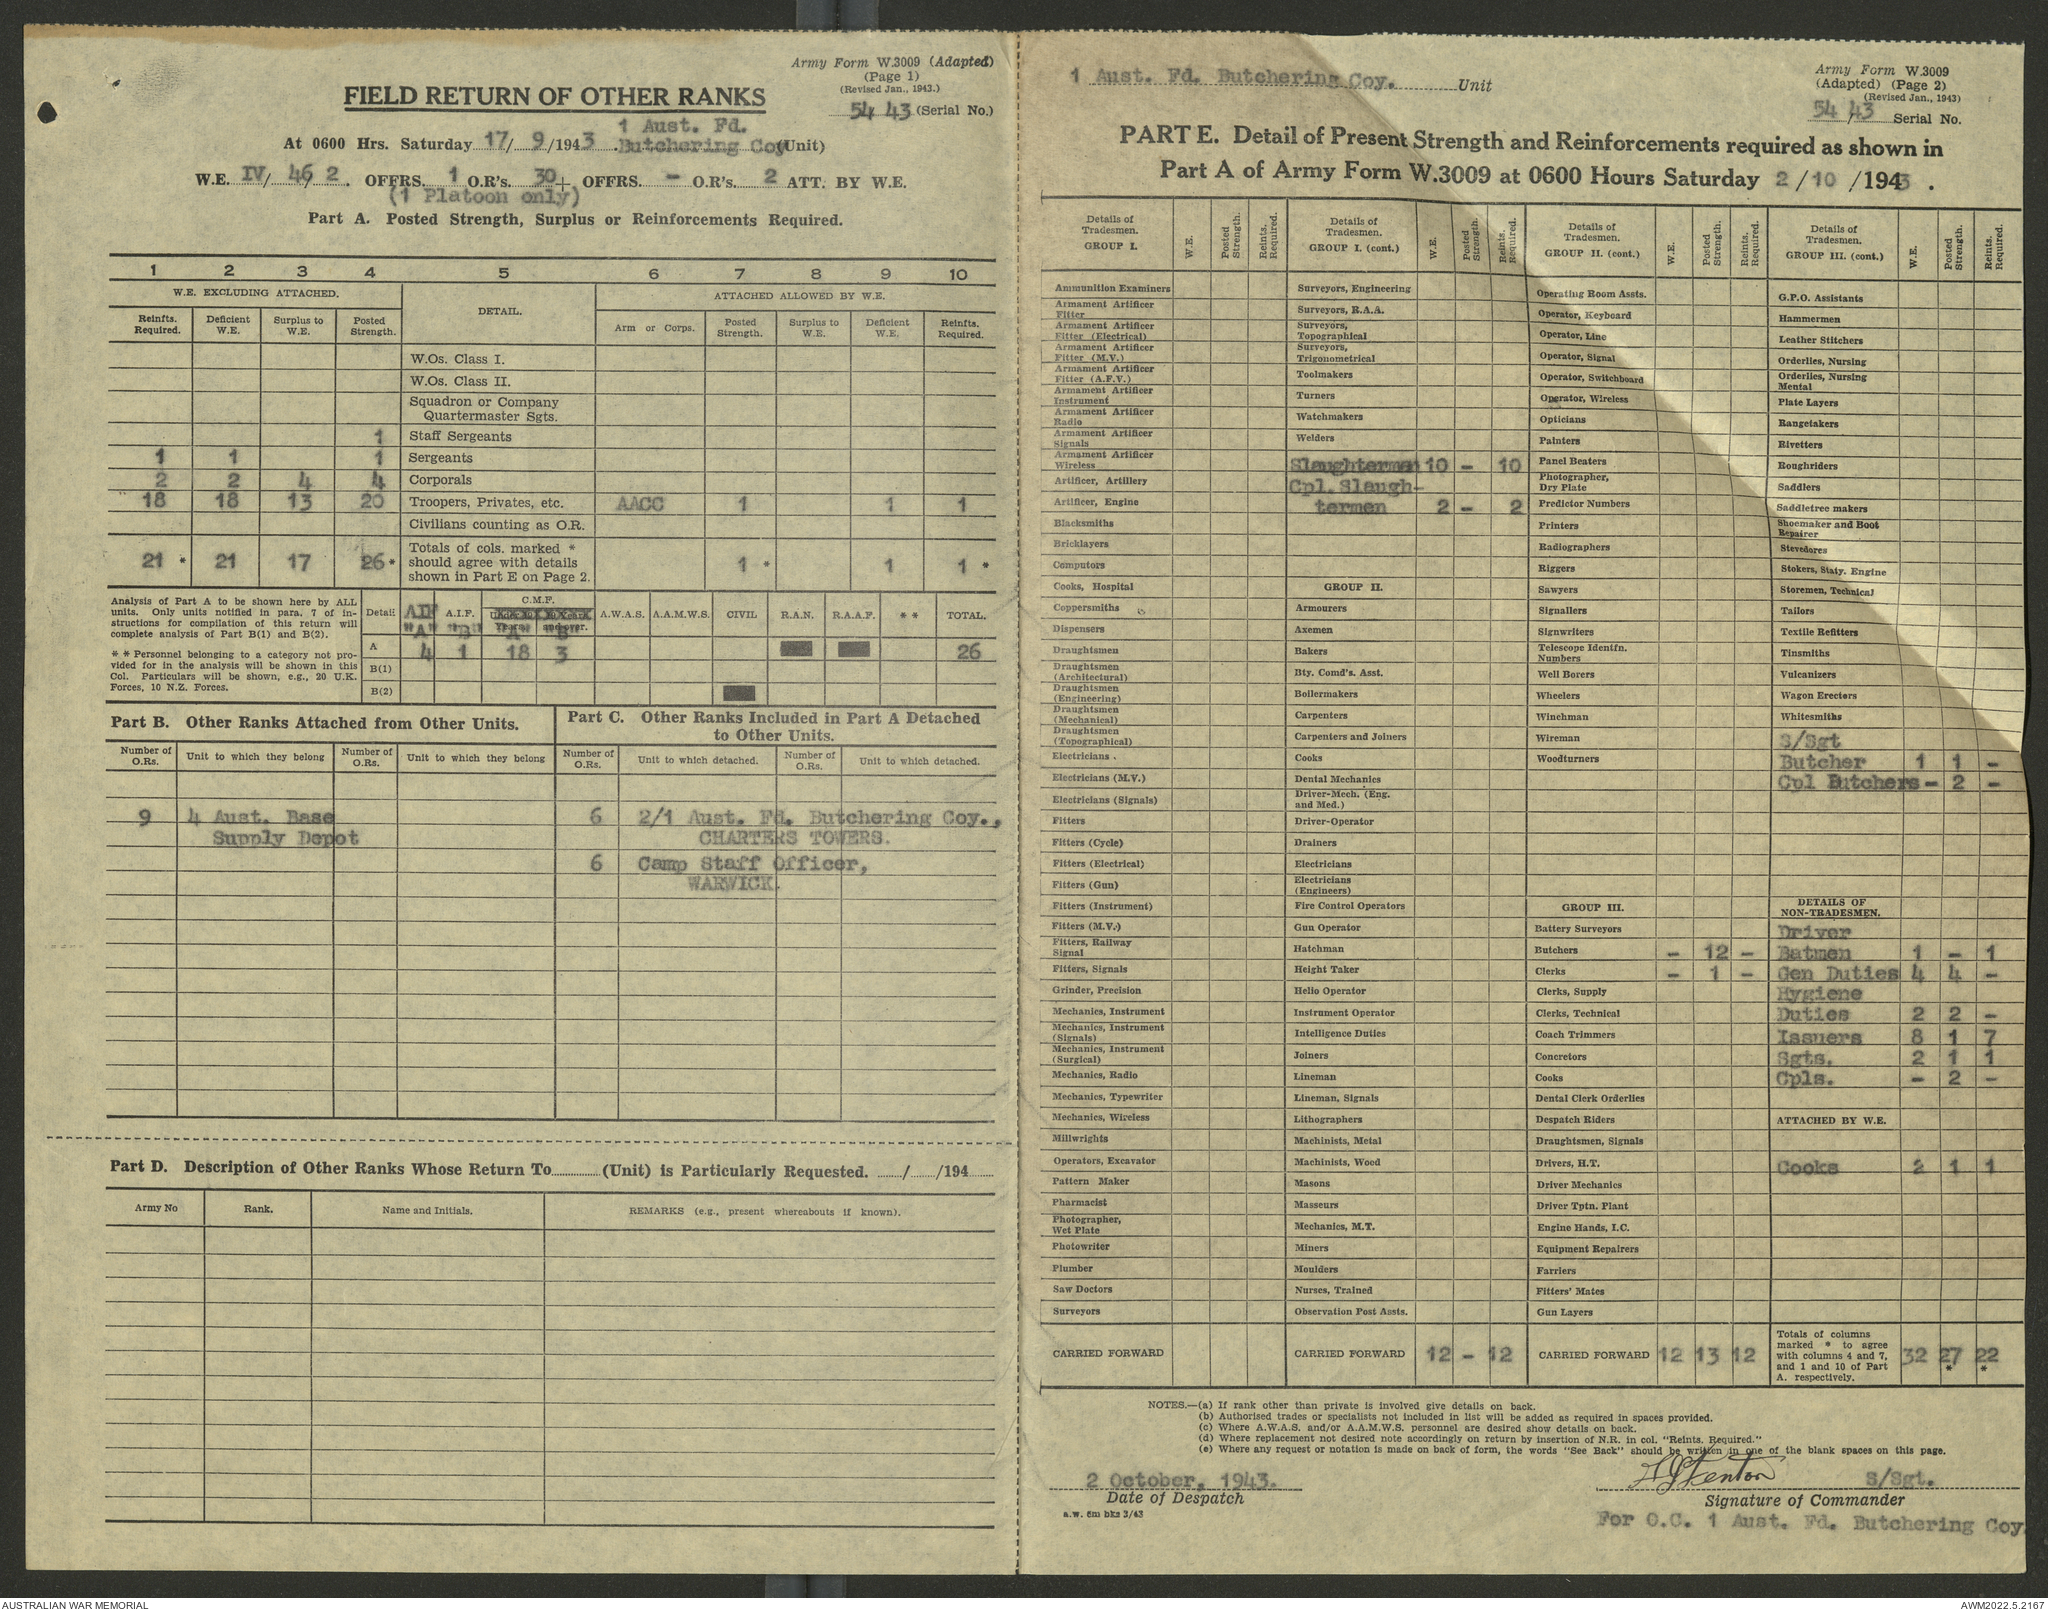 Army Form W.3009 (Adapted)
(Page 1)
(Revised Jan., 1943.)
FIELD RETURN OF OTHER RANKS
54 43 (Serial No.)
1 Aust. Fd.
At 0600 Hrs. Saturday 17/ 9/1943 Butchering Coy (Unit)
W.E. IV/ 46/ 2. OFFRS. 1 O.R's. 30+ OFFRS. - O.R's. 2 ATT. BY W.E.
(1 Platoon only)
Part A. Posted Strength, Surplus or Reinforcements Required.
1 2 3 4 5 6 7 8 9 10
W.E. EXCLUDING ATTACHED. DETAIL. ATTACHED ALLOWED BY W.E.
Reinfts. Required. Deficient W.E. Surplus to W.E. Posted Strength. Arm or Corps. Posted Strength. Surplus to W.E. Deficient W.E. Reinfts. Required.
W.Os. Class I.
W.Os. Class II.
Squadron or Company
Quartermaster Sgts.
1 Staff Sergeants
1 1 1 Sergeants
2 2 4 4 Corporals
18 18 13 20 Troopers, Privates, etc. AACC 1 1 1
Civilians counting as O.R.
Totals of cols. marked *
21 * 21 17 26* should agree with details 1 * 1 1 *
shown in Part E on Page 2.
Analysis of Part A to be shown here by ALL
units. Only units notified in para. 7 of in-
structions for compilation of this return will
complete analysis of Part B(1) and B(2).
* * Personnel belonging to a category not pro-
vided for in the analysis will be shown in this
Col. Particulars will be shown, e.g., 20 U.K.
Forces, 10 N.Z. Forces.
Detail AIF A.I.F. C.M.F. A.W.A.S. A.A.M.W.S. CIVIL R.A.N. R.A.A.F. * * TOTAL.
"A" "B" "A" "B"
A 4 1 18 3 26
B(1)
B(2)
Part B. Other Ranks Attached from Other Units.
Part C. Other Ranks Included in Part A Detached
to Other Units.
Number of O.Rs. Unit to which they belong Number of O.Rs. Unit to which they belong Number of O.Rs. Unit to which detached. Number of O.Rs. Unit to which detached.
9 4 Aust. Base 6 2/1 Aust. Fd. Butchering Coy.,
Supply Depot CHARTERS TOWERS.
6 Camp Staff Officer,
WARWICK.
Part D. Description of Other Ranks Whose Return To (Unit) is Particularly Requested. / /194
Army No Rank. Name and Initials. REMARKS (e.g., present whereabouts if known).
1 Aust. Fd. Butchering Coy. Unit
Army Form W.3009
(Adapted) (Page 2)
(Revised Jan., 1943)
54/43 Serial No.
PART E. Detail of Present Strength and Reinforcements required as shown in
Part A of Army Form W.3009 at 0600 Hours Saturday 2/10/1943.
Details of Tradesmen. GROUP I. W.E. Posted Strength. Reints. Required.
Ammunition Examiners
Armament Artificer Fitter
Armament Artificer Fitter (Electrical)
Armament Artificer Fitter (M.V.)
Armament Artificer Fitter (A.F.V.)
Armament Artificer Instrument
Armament Artificer Radio
Armament Artificer Signals
Armament Artificer Wireless
Artificer, Artillery
Artificer, Engine
Blacksmiths
Bricklayers
Computors
Cooks, Hospital
Coppersmiths
Dispensers
Draughtsmen
Draughtsmen (Architectural)
Draughtsmen (Engineering)
Draughtsmen (Mechanical)
Draughtsmen (Topographical)
Electricians
Electricians (M.V.)
Electricians (Signals)
Fitters
Fitters (Cycle)
Fitters (Electrical)
Fitters (Gun)
Fitters (Instrument)
Fitters (M.V.)
Fitters, Railway Signal
Fitters, Signals
Grinder, Precision
Mechanics, Instrument
Mechanics, Instrument (Signals)
Mechanics, Instrument (Surgical)
Mechanics, Radio
Mechanics, Typewriter
Mechanics, Wireless
Millwrights
Operators, Excavator
Pattern Maker
Pharmacist
Photographer, Wet Plate
Photowriter
Plumber
Saw Doctors
Surveyors
CARRIED FORWARD
Details of Tradesmen. GROUP I. (cont.) W.E. Posted Strength. Reints. Required.
Surveyors, Engineering
Surveyors, R.A.A.
Surveyors, Topographical
Surveyors, Trigonometrical
Toolmakers
Turners
Watchmakers
Welders
Slaughtermen 10 - 10
Cpl. Slaugh-
termen 2 - 2
GROUP II.
Armourers
Axemen
Bakers
Bty. Comd's. Asst.
Boilermakers
Carpenters
Carpenters and Joiners
Cooks
Dental Mechanics
Driver-Mech. (Eng. and Med.)
Driver-Operator
Drainers
Electricians
Electricians (Engineers)
Fire Control Operators
Gun Operator
Hatchman
Height Taker
Helio Operator
Instrument Operator
Intelligence Duties
Joiners
Lineman
Lineman, Signals
Lithographers
Machinists, Metal
Machinists, Wood
Masons
Masseurs
Mechanics, M.T.
Miners
Moulders
Nurses, Trained
Observation Post Assts.
CARRIED FORWARD 12 - 12
Details of Tradesmen. GROUP II. (cont.) W.E. Posted Strength. Reints. Required.
Operating Room Assts.
Operator, Keyboard
Operator, Line
Operator, Signal
Operator, Switchboard
Operator, Wireless
Opticians
Painters
Panel Beaters
Photographer, Dry Plate
Predictor Numbers
Printers
Radiographers
Riggers
Sawyers
Signallers
Signwriters
Telescope Identfn. Numbers
Well Borers
Wheelers
Winchman
Wireman
Woodturners
GROUP III.
Battery Surveyors
Butchers - 12 -
Clerks - 1 -
Clerks, Supply
Clerks, Technical
Coach Trimmers
Concretors
Cooks
Dental Clerk Orderlies
Despatch Riders
Draughtsmen, Signals
Drivers, H.T.
Driver Mechanics
Driver Tptn. Plant
Engine Hands, I.C.
Equipment Repairers
Farriers
Fitters' Mates
Gun Layers
CARRIED FORWARD 12 13 12
Details of Tradesmen. GROUP III. (cont.) W.E. Posted Strength. Reints. Required.
G.P.O. Assistants
Hammermen
Leather Stitchers
Orderlies, Nursing
Orderlies, Nursing Mental
Plate Layers
Rangetakers
Rivetters
Roughriders
Saddlers
Saddletree makers
Shoemaker and Boot Repairer
Stevedores
Stokers, Staty. Engine
Storemen, Technical
Tailors
Textile Refitters
Tinsmiths
Vulcanizers
Wagon Erectors
Whitesmiths
S/Sgt
Butcher 1 1 -
Cpl Butchers - 2 -
DETAILS OF
NON-TRADESMEN.
Driver
Batmen 1 - 1
Gen Duties 4 4 -
Hygiene
Duties 2 2 -
Issuers 8 1 7
Sgts. 2 1 1
Cpls. - 2 -
ATTACHED BY W.E.
Cooks 2 1 1
Totals of columns
marked * to agree
with columns 4 and 7, 32 27 22
and 1 and 10 of Part * *
A. respectively.
NOTES.—(a) If rank other than private is involved give details on back.
(b) Authorised trades or specialists not included in list will be added as required in spaces provided.
(c) Where A.W.A.S. and/or A.A.M.W.S. personnel are desired show details on back.
(d) Where replacement not desired note accordingly on return by insertion of N.R. in col. "Reints. Required."
(e) Where any request or notation is made on back of form, the words "See Back" should be written in one of the blank spaces on this page.
2 October, 1943. S/Sgt.
Date of Despatch Signature of Commander
a.w. 5m bks 3/43
For O.C. 1 Aust. Fd. Butchering Coy.
AUSTRALIAN WAR MEMORIAL AWM2022.5.2167